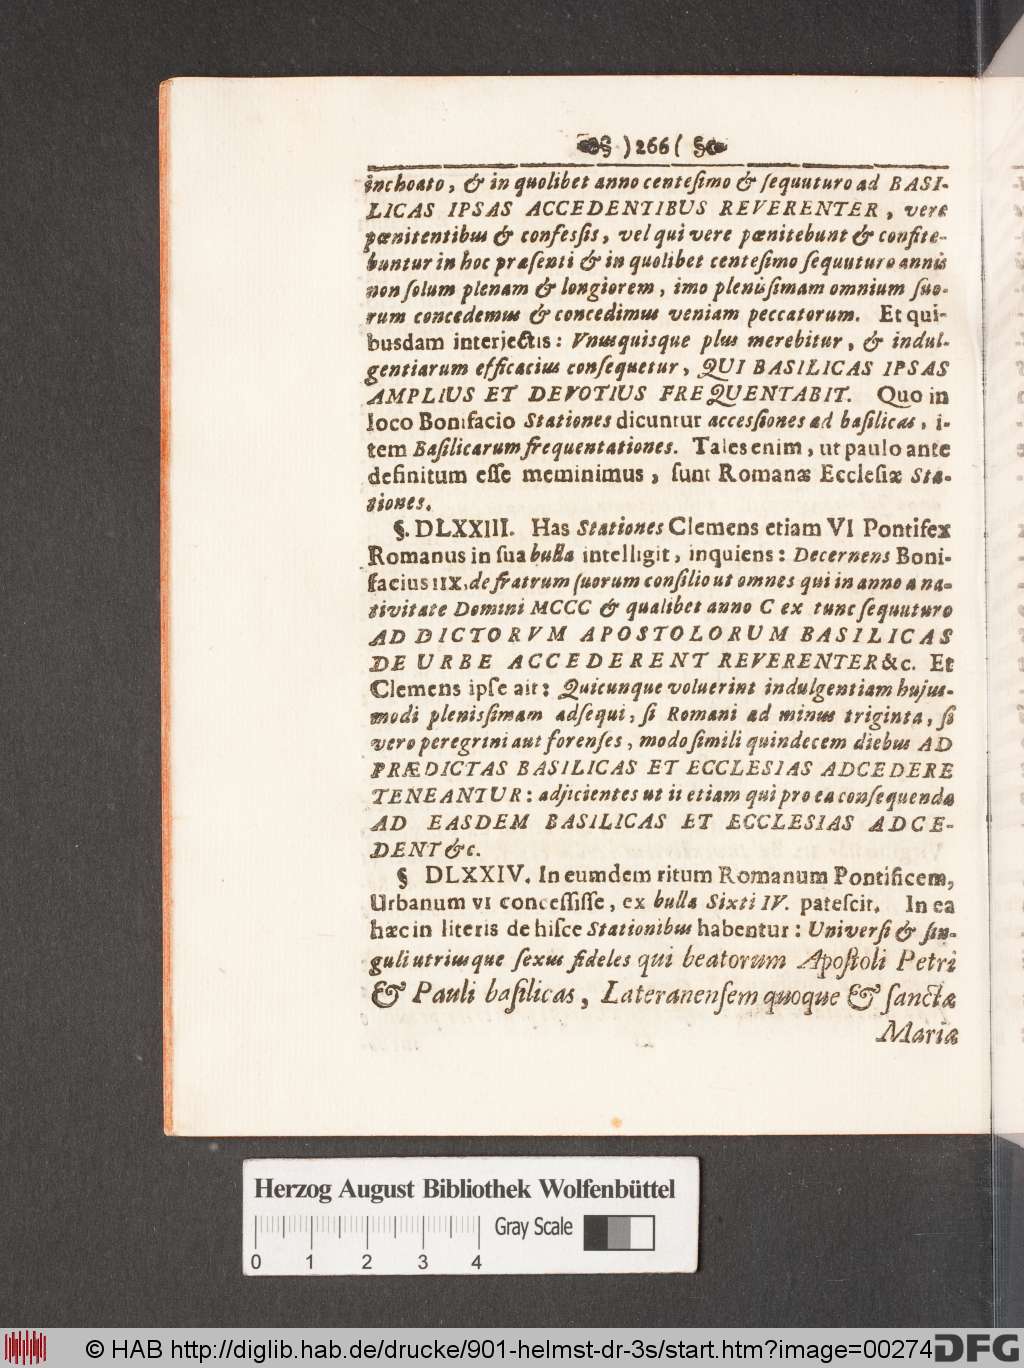 )266(
inchoato, & in quolibet anno centesimo & sequuturo ad BASI-
LICAS IPSAS ACCEDENTIBUS REVERENTER, vere
pœnitentibus & confessis, vel qui vere pœnitebunt & confite-
buntur in hoc præsenti & in quolibet centesimo sequuturo annis
non solum plenam & longiorem, imo plenissimam omnium suo-
rum concedemus & concedimus veniam peccatorum. Et qui-
busdam interjectis: Vnusquisque plus merebitur, & indul-
gentiarum efficacius consequetur, QUI BASILICAS IPSAS
AMPLIUS ET DEVOTIUS FREQUENTABIT. Quo in
loco Bonifacio Stationes dicuntur accessiones ad basilicas, i-
tem Basilicarum frequentationes. Tales enim, ut paulo ante
definitum esse meminimus, sunt Romanæ Ecclesiæ Sta-
tiones.
§. DLXXIII. Has Stationes Clemens etiam VI Pontifex
Romanus in sua bulla intelligit, inquiens: Decernens Boni-
facius IIX, de fratrum suorum consilio ut omnes qui in anno a na-
tivitate Domini MCCC & qualibet anno C ex tunc sequuturo
AD DICTORVM APOSTOLORUM BASILICAS
DE URBE ACCEDERENT REVERENTER &c. Et
Clemens ipse ait: Quicunque voluerint indulgentiam hujus-
modi plenissimam adsequi, si Romani ad minus triginta, si
vero peregrini aut forenses, modo simili quindecem diebus AD
PRÆDICTAS BASILICAS ET ECCLESIAS ADCEDERE
TENEANTUR: adjicientes ut ii etiam qui pro ea consequenda
AD EASDEM BASILICAS ET ECCLESIAS ADCE-
DENT &c.
§ DLXXIV. In eumdem ritum Romanum Pontificem,
Urbanum VI concessisse, ex bulla Sixti IV. patescit. In ea
hæc in literis de hisce Stationibus habentur: Universi & sin-
guli utriusque sexus fideles qui beatorum Apostoli Petri
& Pauli basilicas, Lateranensem quoque & sanctæ
Mariæ
Herzog August Bibliothek Wolfenbüttel
Gray Scale
0 1 2 3 4
© HAB http://diglib.hab.de/drucke/901-helmst-dr-3s/start.htm?image=00274
DFG